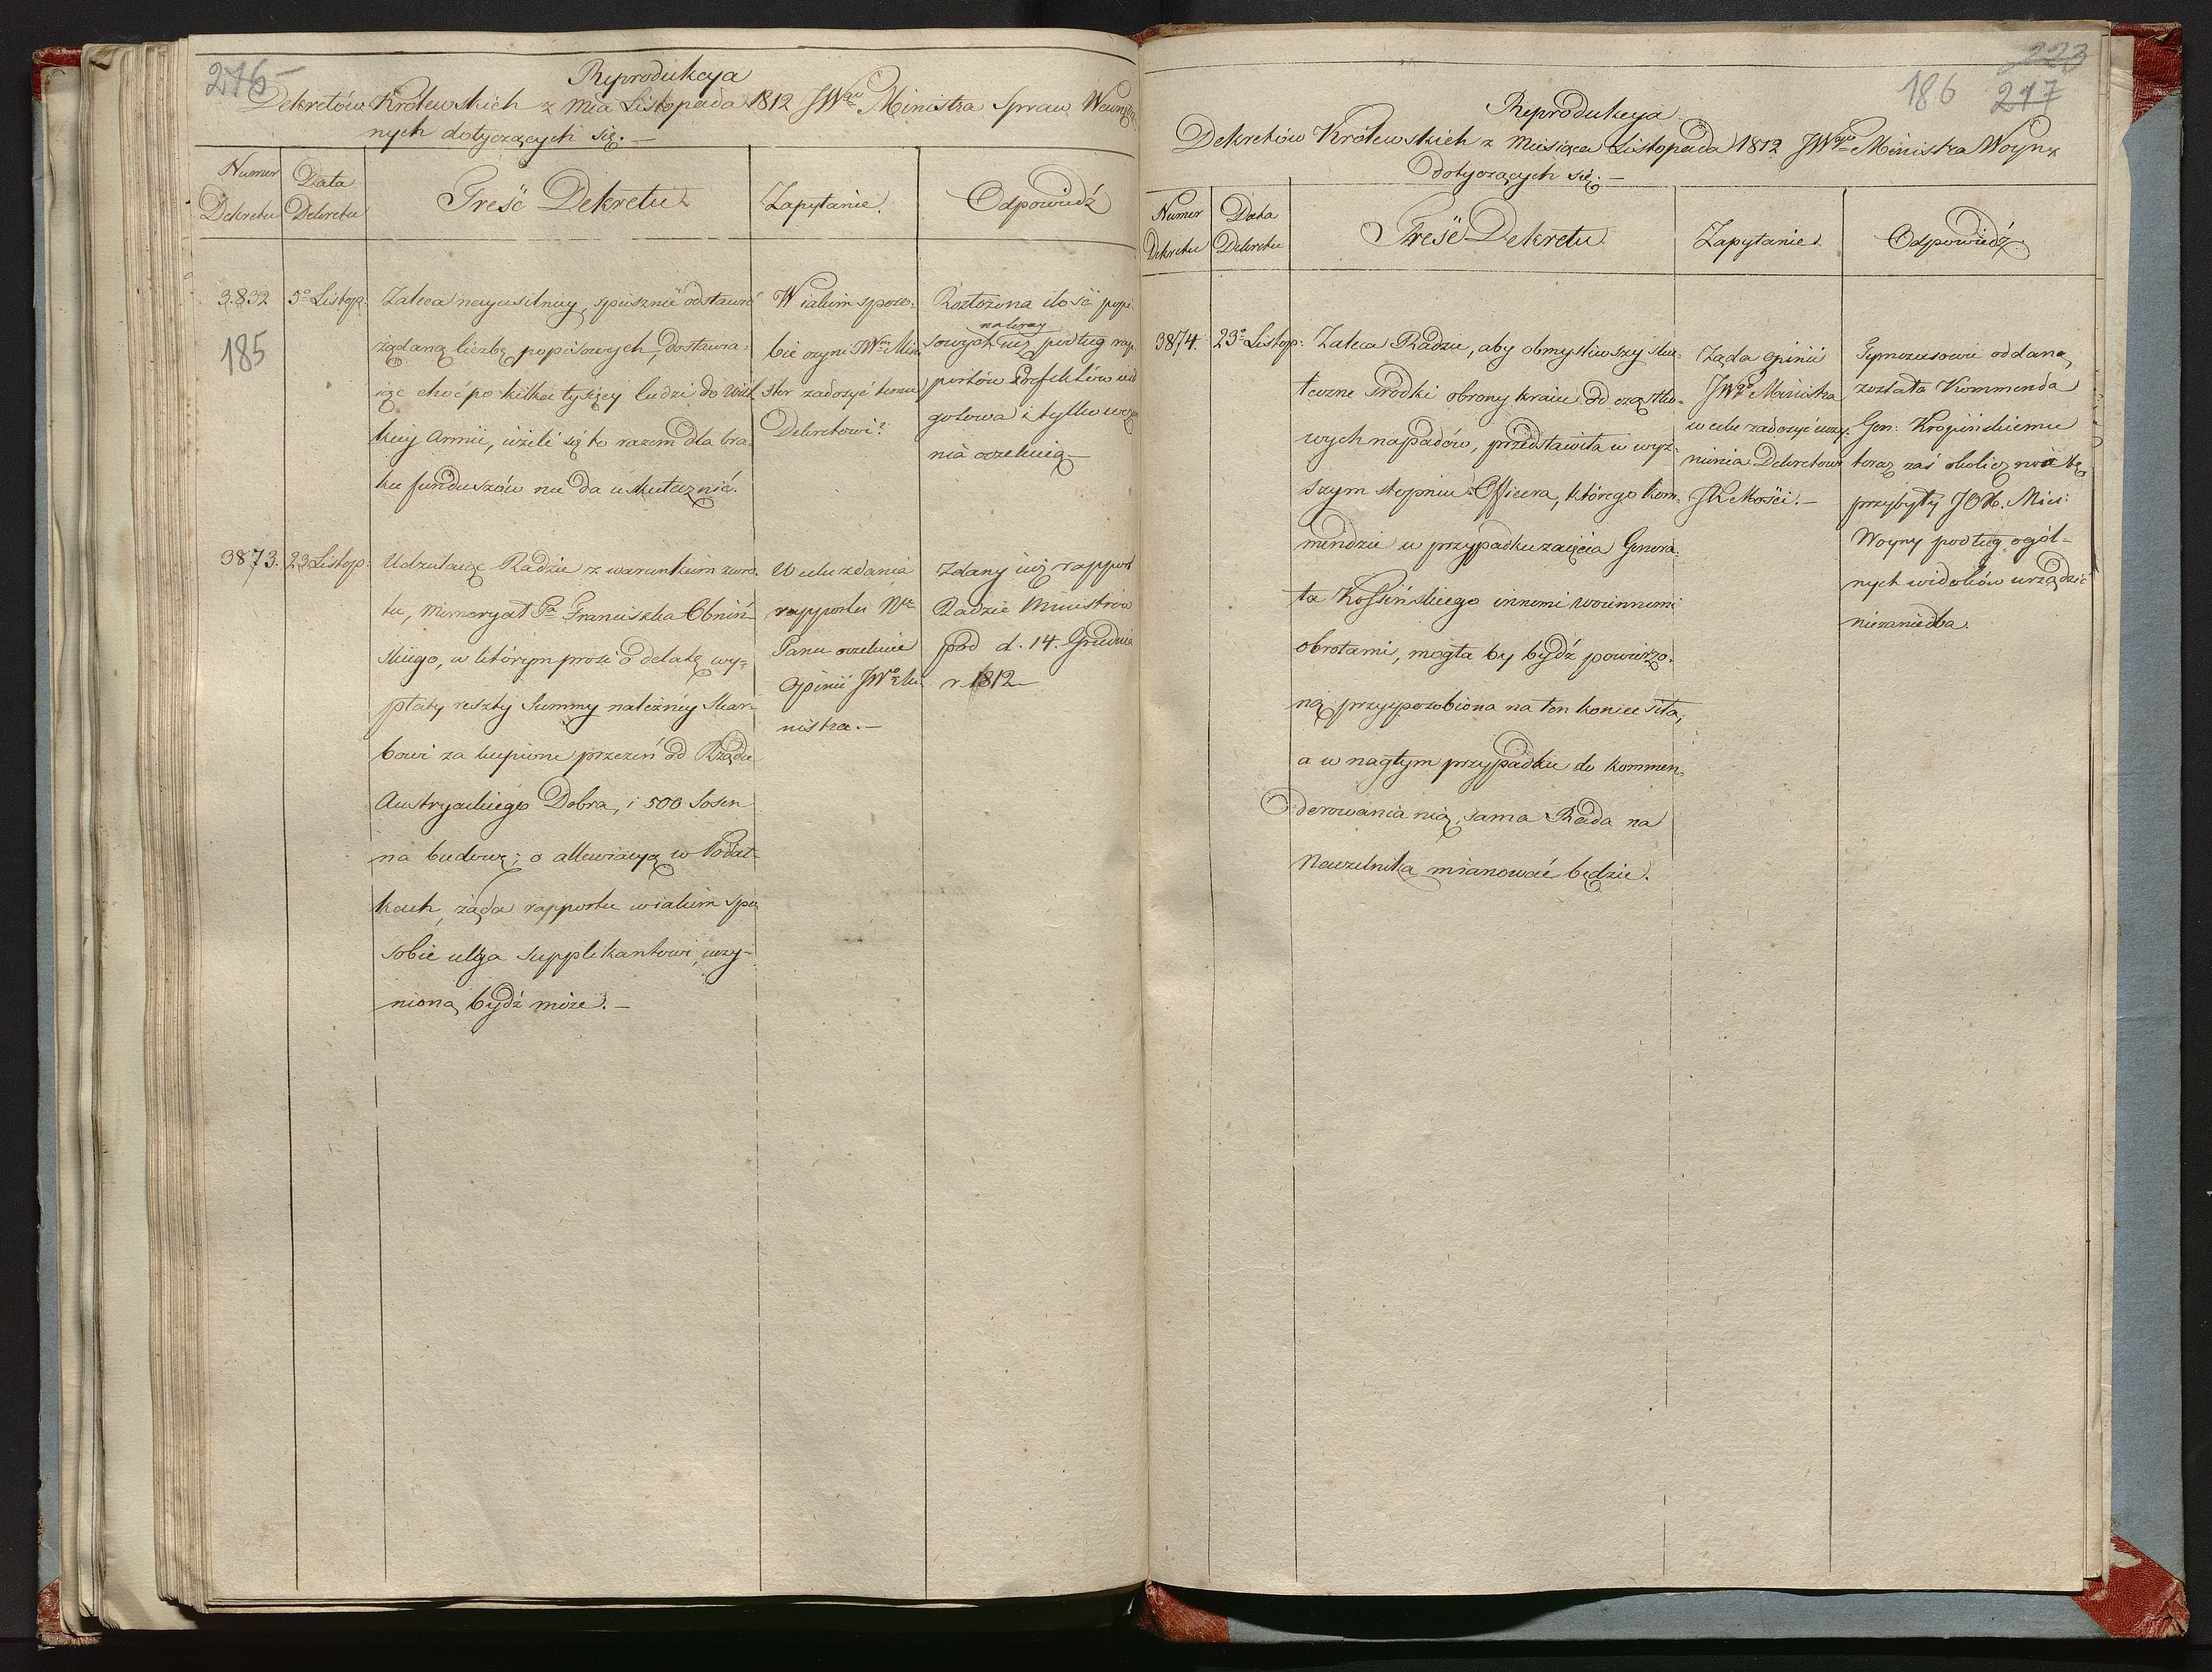 216
Reprodukcya
Dekretów Królewskich z Mca Listopada 1812 JWgo Ministra Spraw Wewnętrz-
nych dotyczących się. —
Numer Dekretu
Data Dekretu
Treść Dekretu
Zapytanie.
Odpowiedź
3832
5o Listop:
185
Zaleca nayusilniey, spiesznie odstawić
żądaną liczbę popisowych, dostawia-
iąc choć po kilka tysięcy ludzi do wiel
kiey Armii, ieżeli się to razem dla bra-
ku funduszów nie da uskutecznić.
W iakim sposo-
bie czyni JWny Mini
ster zadosyć temu
Dekretowi?
Rozłożona ilość popi
należy
sowych iuż podług rap
portów Prefektów iest
gotowa i tylko wezwa
nia oczekuią —
3873.
23 Listop:
Udzielaiąc Radzie z warunkiem zwro-
tu, Memoryał Pa Franciszka Obniń-
skiego, w którym prosi o delatę wy-
płaty reszty Summy należnéy Skar-
bowi za kupione przezeń od Rządu
Austryackiego Dobra, i 500 Sosen
na budowę; o allewiacyą w Podat-
kach, żąda rapportu w iakim spo
sobie ulga supplikantowi uczy-
nioną bydź może. —
W celu zdania
rapportu Nu
Panu oczekuie
Opinii JWo Mi
nistra. —
Zdany iuż rapport
Radzie Ministrów
pod d. 14. Grudnia
r. 1812 —
223
186 217
Reprodukcya
Dekretów Królewskich z Miesiąca Listopada 1812 JWgo Ministra Woyny
dotyczących się. —
Numer Dekretu
Data Dekretu
Treść Dekretu
Zapytanie.
Odpowiedź.
3874.
23o Listop:
Zaleca Radzie, aby obmyśliwszy sku-
teczne środki obrony kraiu od cząstko-
wych napadów, przedstawiła w wyż-
szym stopniu Officera, którego kom-
mendzie w przypadku zaięcia Genera-
ła Kossińskiego innemi woiennemi
obrotami, mogła by bydź powierzo-
ną przysposobiona na ten koniec siła;
a w nagłym przypadku do kommen-
derowania nią, sama Rada na
Naczelnika mianować będzie.
Żąda Opinii
JWgo Ministra
w celu zadosyć uczy-
nienia Dekretowi
JKMości. —
Tymczasowie oddaną
została Kommenda
Gen: Kropińskiemu
teraz zaś okoliczność tę
przybyły JOX. Min:
Woyny podług ogól-
nych widoków urządzić
niezaniedba.